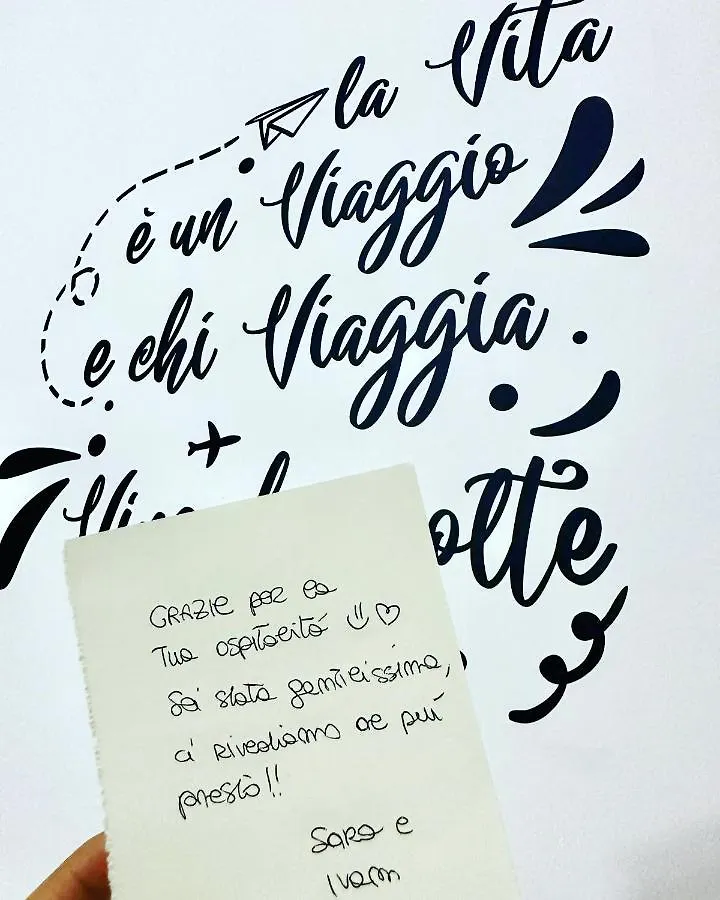 la Vita
è un Viaggio
e chi Viaggia
GRAZIE per la
Tua ospitalità
Sei stata gentilissima,
ci rivediamo al più
presto!!
Sara e
Ivan